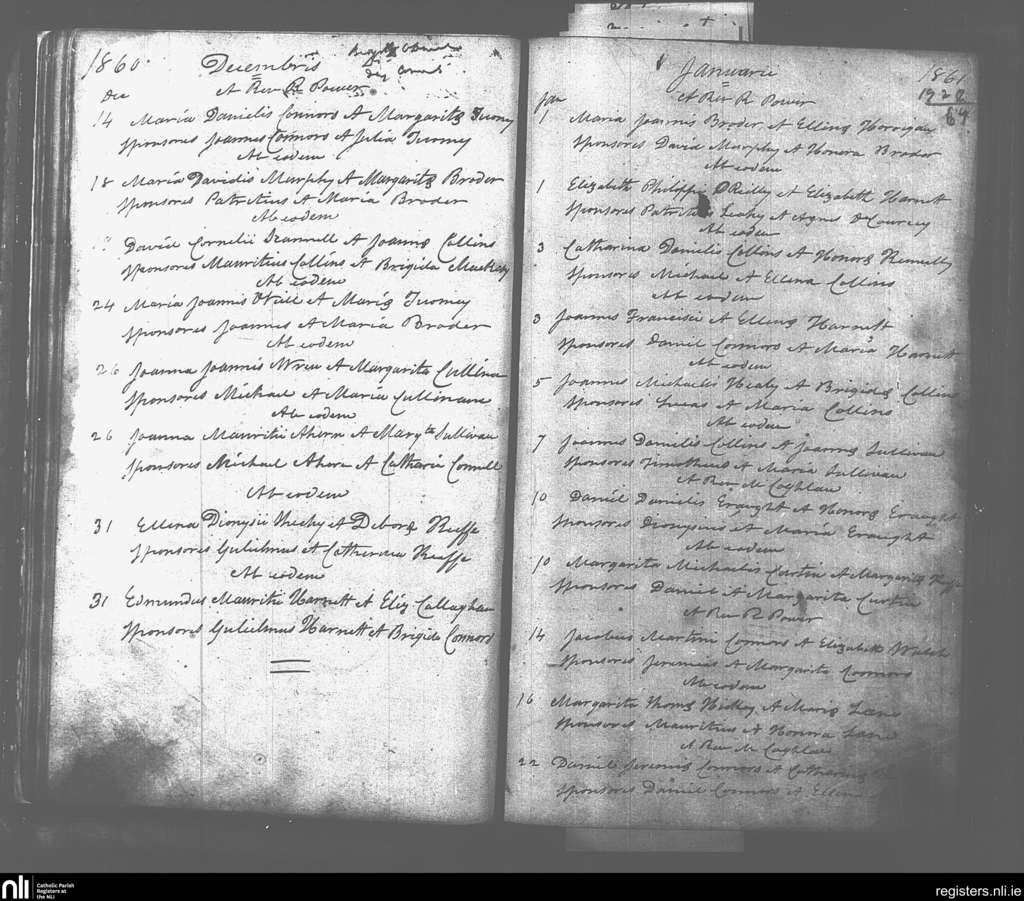 1860. Decembris
Dec A Rev R Power
14 Maria Danielis Connors et Margaritæ Twomey
Sponsores Joannes Connors et Julia Twomey
Ab eodem
18 Maria Davidis Murphy et Margaritæ Broder
Sponsores Patritius et Maria Broder
Ab eodem
David Cornelii Scannell et Joannæ Collins
Sponsores Mauritius Collins et Brigida Mackey
Ab eodem
24 Maria Joannis et Mariæ Twomey
Sponsores Joannes et Maria Broder
Ab eodem
26 Joanna Joannis Wren et Margarita Cullina
Sponsores Michael et Maria Cullinane
Ab eodem
26 Joanna Mauritii Ahern et Margta Sullivan
Sponsores Michael Ahern et Catharia Connell
Ab eodem
31 Ellena Dionysii et Deboræ Keeffe
Sponsores Gulielmus et Catherina Keeffe
Ab eodem
31 Edmundus Mauritii Harnett et Eliz Callaghan
Sponsores Gulielmus Harnett et Brigida Connors
Januarii 1861
Jan A Rev R Power
1 Maria Joannis Broder et Ellenæ Horrigan
Sponsores David Murphy et Honora Broder
Ab eodem
1 Elizabeth Philippi O'Reilly et Elizabeth Harnett
Sponsores Patritius Leahy et Agnes DCourcey
Ab eodem
3 Catharina Danielis Collins et Honoræ Kenneally
Sponsores Michael et Ellena Collins
Ab eodem
3 Joannes Francisci et Ellenæ Harnett
Sponsores Daniel Connors et Maria Harnett
Ab eodem
5 Joannes Michaelis Healy et Brigidæ Collins
Sponsores Lucas et Maria Collins
Ab eodem
7 Joannes Danielis Collins et Joannæ Sullivan
Sponsores Timotheus et Maria Sullivan
A Rev M Coghlan
10 Daniel Danielis Eraught et Honoræ Eraught
Sponsores Dionysius et Maria Eraught
Ab eodem
10 Margarita Michaelis Curtin et Margaritæ Keeffe
Sponsores Daniel et Margarita Curtin
A Rev R Power
14 Jacobus Martini Connors et Elizabeth Walsh
Sponsores Jeremias et Margarita Connors
Ab eodem
16 Margarita Thomæ Hickey et Mariæ Lane
Sponsores Mauritius et Honora Lane
A Rev M Coghlan
22 Daniel Jeremiæ Connors et Catharinæ
Sponsores Daniel Connors et Ellena
nli Catholic Parish
Registers at
the NLI
registers.nli.ie